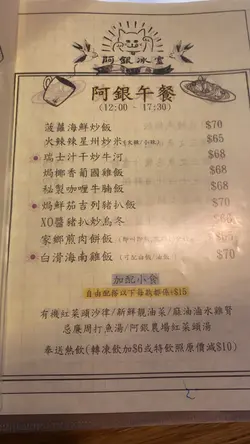 阿銀冰室
阿銀午餐
(12:00 - 17:30)
菠蘿海鮮炒飯 $70
火辣辣星州炒米 $65
瑞士汁干炒牛河 $68
焗椰香葡國雞飯 $68
秘製咖喱牛腩飯 $68
焗鮮茄吉列豬扒飯 $70
XO醬豬扒炒烏冬 $66
家鄉煎肉餅飯 $68
白滑海南雞飯 $70
加配小食
自由配搭以下每款都係+$15
有機紅菜頭沙律/新鮮靚油菜/麻油滷水雞腎
忌廉周打魚湯/阿銀農場紅菜頭湯
奉送熱飲(轉凍飲加$6或特飲照原價減$10)
2